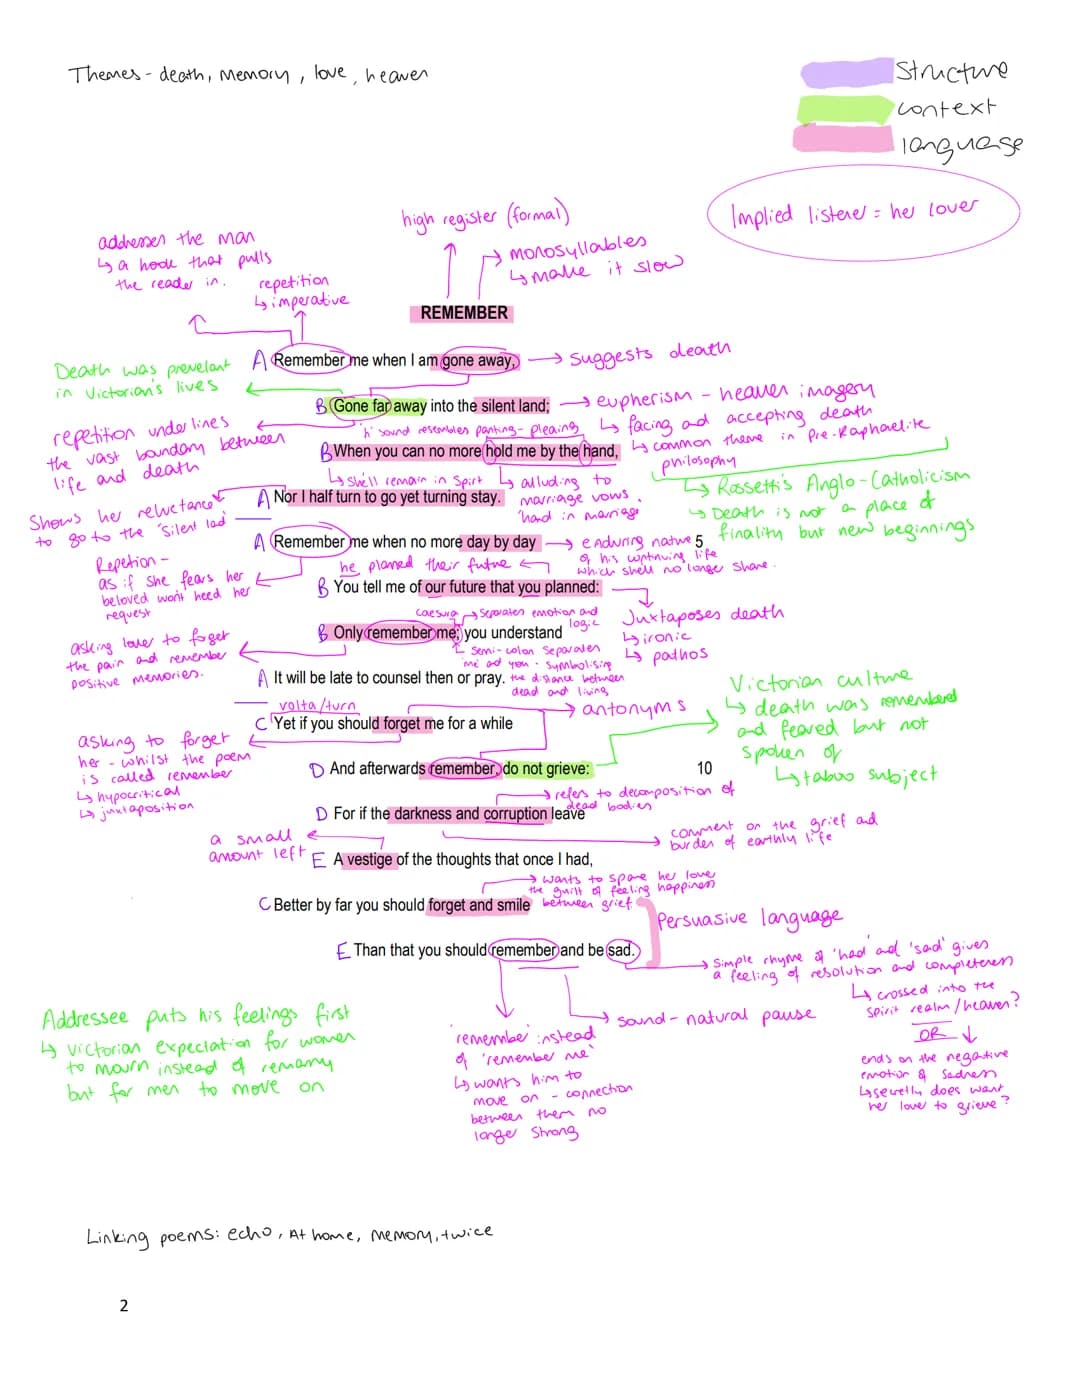 Themes - death, memory, love, heaven
structure
context
language
Implied listener = her lover
high register (formal)
monosyllables
↳ make it slow
addresses the man
↳ a hook that pulls
the reader in.
repetition
↳ imperative
REMEMBER
A Remember me when I am gone away,
→ suggests death
Death was prevelant
in Victorian's lives
B Gone far away into the silent land;
→ eupherism - heaven imagery
↳ facing and accepting death
↳ common theme in Pre-Raphaelite
philosophy
repetition underlines
the vast boundary between
life and death
'h' sound resembles panting - pleaing
B When you can no more hold me by the hand,
↳ she'll remain in spirt
↳ alluding to
marriage vows.
'hand in marriage
↳ Rossetti's Anglo-Catholicism
↳ Death is not a place of
finality but new beginnings
A Nor I half turn to go yet turning stay.
Shows her reluctance
to go to the 'silent lad'
A Remember me when no more day by day
5
→ enduring nature
of his continuing life
which shell no longer share.
he planned their future
Repetion -
as if she fears her
beloved won't heed her
request
B You tell me of our future that you planned:
Juxtaposes death
↳ ironic
↳ pathos
caesura → separates emotion and
logic
B Only remember me; you understand
semi-colon separates
'me and you' - symbolising
the distance between
dead and living
asking lover to forget
the pain and remember
positive memories.
A It will be late to counsel then or pray.
volta/turn
→ antonyms
C Yet if you should forget me for a while
Victorian culture
↳ death was remembered
and feared but not
spoken of
↳ taboo subject
asking to forget
her - whilst the poem
is called remember
↳ hypocritical
↳ juxtaposition
D And afterwards remember, do not grieve:
10
→ refers to decomposition of
dead bodies
D For if the darkness and corruption leave
→ comment on the grief and
burden of earthly life
a small
amount left
E A vestige of the thoughts that once I had,
→ wants to spare her love
the guilt of feeling happiness
between grief.
C Better by far you should forget and smile
Persuasive language
E Than that you should remember and be sad.
→ simple rhyme of 'had' and 'sad' gives
a feeling of resolution and completeness
↳ crossed into the
spirit realm/heaven?
OR
ends on the negative
emotion of sadness
↳ secretly does want
her lover to grieve?
→ sound - natural pause
'remember' instead
of 'remember me'
↳ wants him to
move on - connection
between them no
longer strong
Addressee puts his feelings first
↳ victorian expectation for women
to mourn instead of remarry
but for men to move on
Linking poems: echo, At home, memory, twice
2